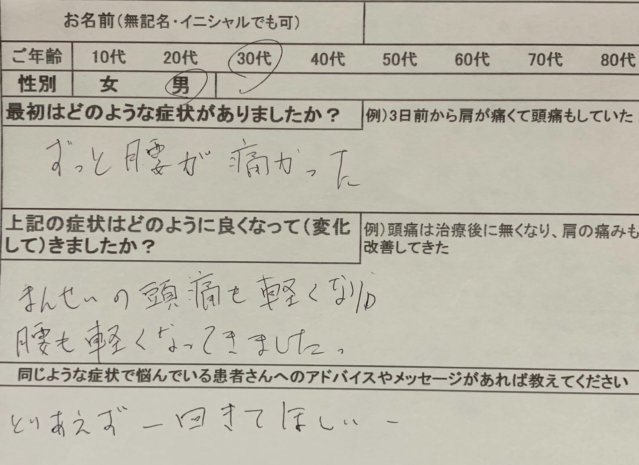 お名前(無記名・イニシャルでも可)
ご年齢 10代 20代 30代 40代 50代 60代 70代 80代
性別 女 男
最初はどのような症状がありましたか? 例)3日前から肩が痛くて頭痛もしていた
ずっと腰が痛かった
上記の症状はどのように良くなって(変化 例)頭痛は治療後に無くなり、肩の痛みも
して)きましたか? 改善してきた
まんせいの頭痛も軽くなり
腰も軽くなってきました。
同じような症状で悩んでいる患者さんへのアドバイスやメッセージがあれば教えてください
とりあえず一回きてほしいー